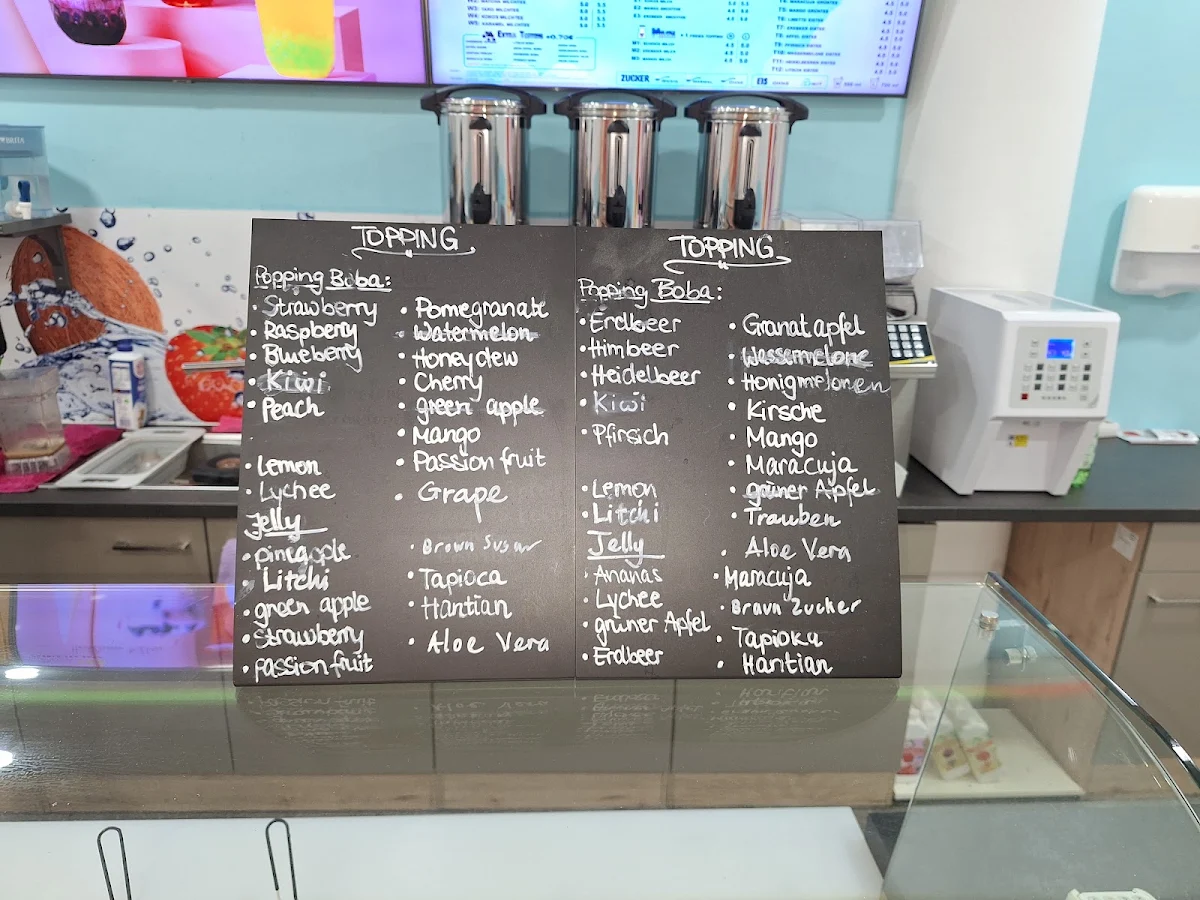 EXTRA TOPPING +0.70€
ZUCKER
BRITA
TOPPING
Popping Boba:
• Strawberry
• Raspberry
• Blueberry
• Kiwi
• Peach
• Lemon
• Lychee
Jelly
• pineapple
• Litchi
• green apple
• Strawberry
• passion fruit
• Pomegranate
• Watermelon
• Honeydew
• Cherry
• green apple
• Mango
• Passion fruit
• Grape
• Brown Sugar
• Tapioca
• Hantian
• Aloe Vera
TOPPING
Popping Boba:
• Erdbeer
• Himbeer
• Heidelbeer
• Kiwi
• Pfirsich
• Lemon
• Litchi
Jelly
• Ananas
• Lychee
• grüner Apfel
• Erdbeer
• Granatapfel
• Wassermelone
• Honigmelonen
• Kirsche
• Mango
• Maracuja
• grüner Apfel
• Trauben
• Aloe Vera
• Maracuja
• Braun Zucker
• Tapioka
• Hantian